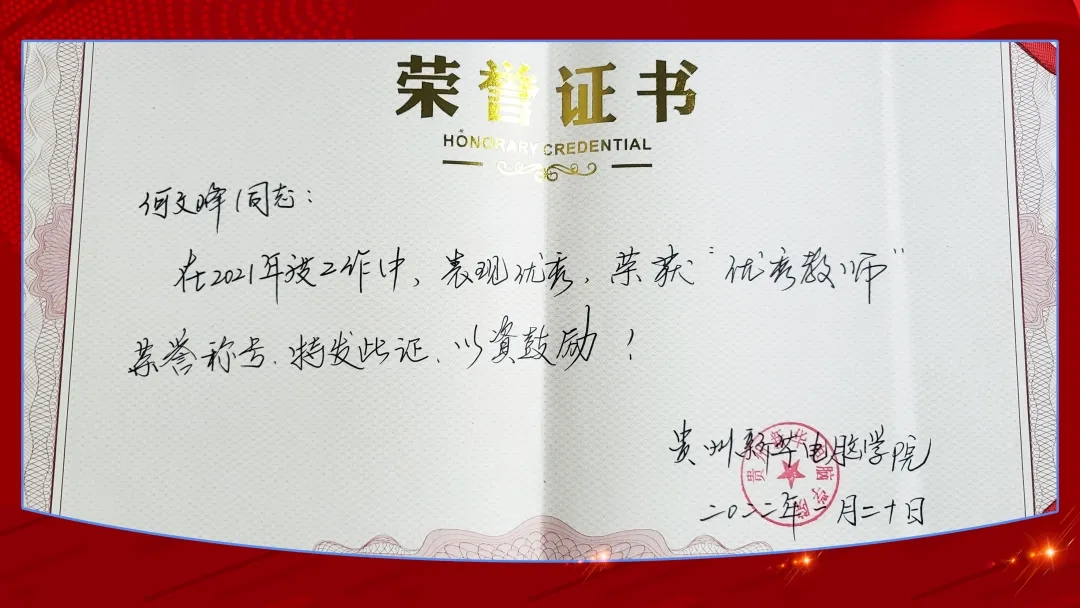 荣誉证书
HONORARY CREDENTIAL
何文峰同志：
在2021年度工作中，表现优秀，荣获“优秀教师”
荣誉称号.特发此证、以资鼓励！
贵州新华电脑学院
贵州新华电脑学院
二〇二二年一月二十日